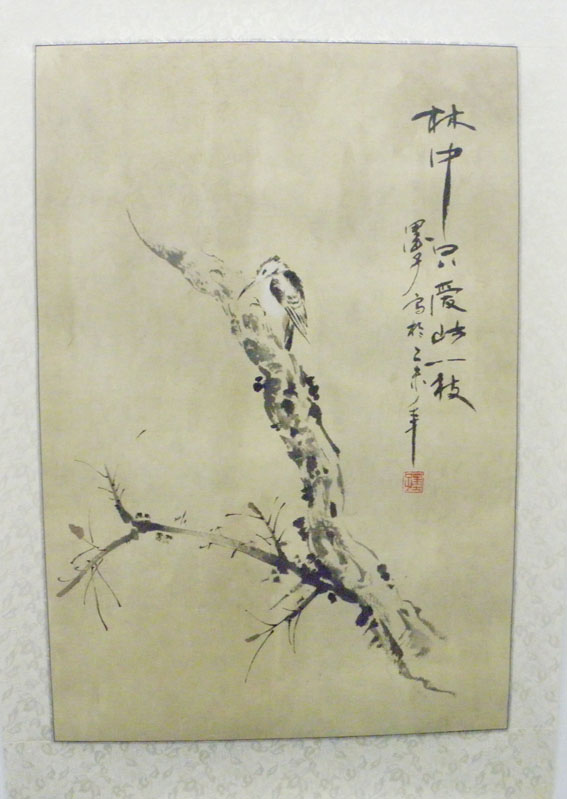 林中只愛此一枝
寫於乙未年